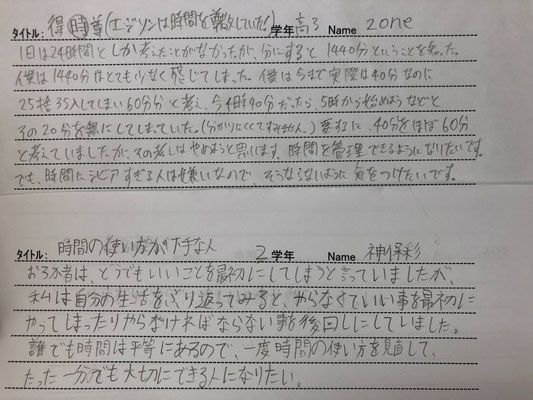 タイトル: 得時尊(エジソンは時間を尊敬していた!) 学年 高3 Name zone
1日は24時間としか考えたことがなかったが、分にすると1440分ということを知った。
僕は1440分はとても少なく感じてしまった。僕は今まで実際は40分なのに
25捨35入してしまい60分と考え、今4時40分だったら、5時から始めようなどと
その20分を無にしてしまっていた。(分かりにくくてすみません。)要するに、40分をほぼ60分
と考えていましたが、その考えはやめようと思います。時間を管理できるようになりたいです。
でも、時間にシビアすぎる人は嫌いなので、そうならないように気をつけたいです。
タイトル: 時間の使い方が下手な人 2 学年 Name 神保彩
おろか者は、どうでもいいことを最初にしてしまうと言っていましたが、
私は自分の生活をふり返ってみると、やらなくていい事を最初に
やってしまったりやらなければならない事を後回しにしていました。
誰でも時間は平等にあるので、一度時間の使い方を見直して、
たった一分でも大切にできる人になりたい。